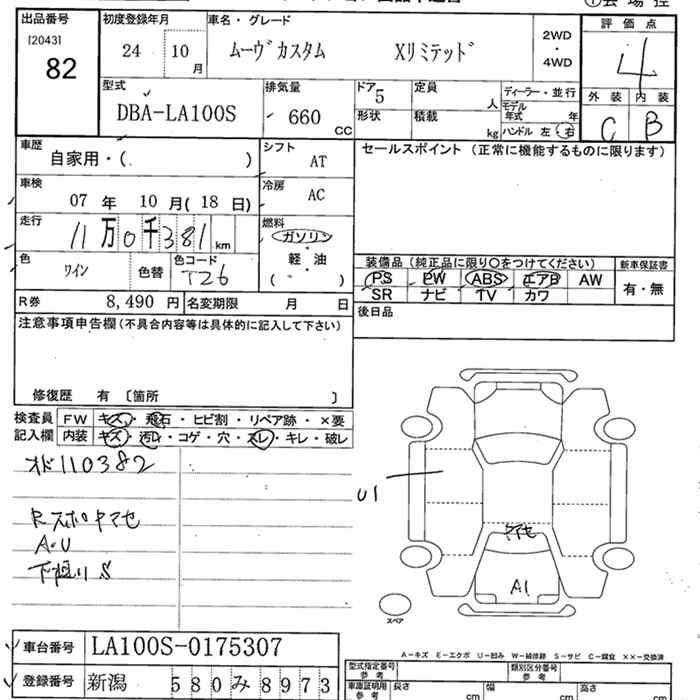 出品番号 初度登録年月 車名・グレード 評価点
[2043]
82
24 10月 ムーヴカスタム Xリミテッド 2WD・4WD 4
型式 排気量 ドア 定員 ディーラー・並行 外装 内装
DBA-LA100S 660 CC 5 人 モデル年式 年
形状 積載 kg ハンドル 左・右 C B
車歴 シフト セールスポイント（正常に機能するものに限ります）
自家用・( ) AT
車検 冷房
07 年 10 月( 18 日) AC
走行 燃料
11万0千381km ガソリン
色 色コード 軽・油 装備品（純正品に限り○をつけてください） 新車保証書
ワイン 色替 T26 ( ) PS PW ABS エアB AW 有・無
SR ナビ TV カワ
R券 8,490 円 名変期限 月 日 後日品
注意事項申告欄（不具合内容等は具体的に記入して下さい）
修復歴 有 〔箇所 〕
検査員 FW キズ・飛石・ヒビ割・リペア跡・×要
記入欄 内装 キズ・汚レ・コゲ・穴・スレ・キレ・破レ
オド110382
U1
Rスポヤマセ ヤマセ
A・U
下廻りS A1
スペア
車台番号 LA100S-0175307
A－キズ E－エクボ U－凹み W－補修跡 S－サビ C－腐食 ××－交換済
型式指定番号 参考 類別区分番号 参考
登録番号 新潟 580み8973 車庫証明用 参考 長さ cm 幅 cm 高さ cm